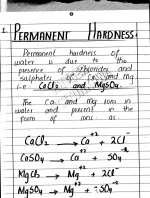 1. PERMANENT HARDNESS:
Permanent hardness of
water is due to the
presence of chlorides and
sulphates of Ca and Mg
i.e. CaCl₂ and MgSO₄.
The Ca and Mg ions in
water and present in the
form of ions as
CaCl₂ → Ca⁺² + 2Cl⁻
CaSO₄ → Ca⁺² + SO₄⁻²
MgCl₂ → Mg⁺² + 2Cl⁻
MgSO₄ → Mg⁺² + SO₄⁻²